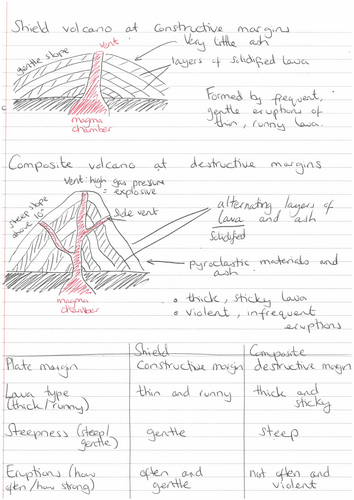 Shield volcano at constructive margins
vent
Very little ash
gentle slope
layers of solidified lava
magma
chamber
Formed by frequent,
gentle eruptions of
thin, runny lava.
Composite volcano at destructive margins
vent: high gas pressure
= explosive
steep slope
above 10°
side vent
alternating layers of
lava and ash
solidified
pyroclastic materials and
ash
magma
chamber
• thick, sticky lava
• violent, infrequent
eruptions
Shield Composite
Plate margin constructive margin destructive margin
Lava type thin and runny thick and
(thick/runny) sticky
Steepness (steep/ gentle steep
gentle)
Eruptions (how often and not often and
often/how strong) gentle violent